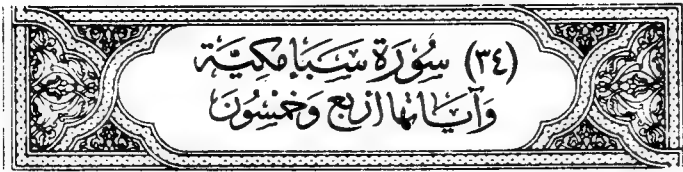 (٣٤) سُورَة سَبَإ مَكِيَّة
وَآيَاتهَا أرْبَع وَخَمْسُونَ